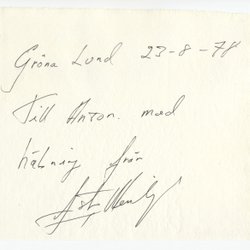 Gröna Lund 23-8-78
Till Anton. med
hälsning från